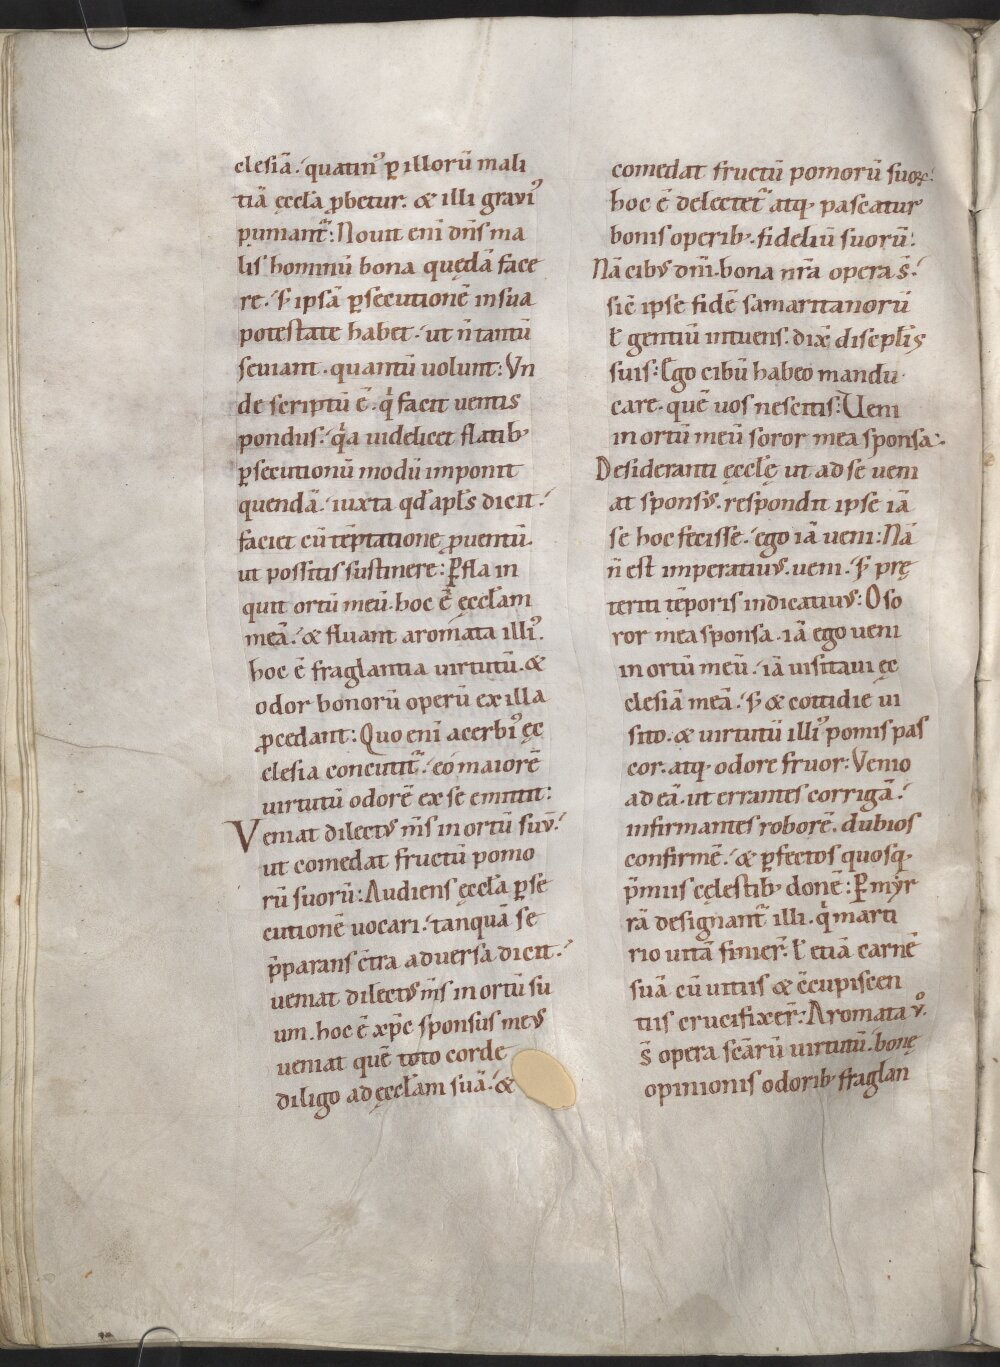 clesiā. quatin᷒ ꝑ illorū mali
tiā ęccła ꝓbetur. & illi graui᷒
puniant᷑: Nouit eni dn̄s ma
lis hominū bona quędā face
re. s̄ ipsā ꝑsecutionē in sua
potestate habet. ut n̄ tantū
seuiant. quantū uolunt: Vn
de scriptū ē. qͥ facit uentis
pondus. qͥa uidelicet flatib;
ꝑsecutionū modū imponit
quendā. iuxta qđ apłs dicit.
faciet cū tēptatione ꝓuentū.
ut possitis sustinere: Ꝑfla in
quit ortū meū. hoc ē ęccłam
meā. & fluant aromata illi᷒.
hoc ē fraglantia uirtutū. &
odor bonorū operū ex illa
ꝓcedant: Quo eni acerbi᷒ ęc
clesia concutit᷑. eo maiorē
uirtutū odorē ex se emittit:
Veniat dilectus m̄s in ortū suū.
ut comedat fructū pomo
rū suorū: Audiens ęccła ꝑse
cutionē uocari. tanquā se
p̄parans c̄tra aduersa dicit.
ueniat dilectus m̄s in ortū su
um. hoc ē xp̄c sponsus meus
ueniat quē toto corde
diligo ad ęccłam suā. &
comedat fructū pomorū suoꝝ.
hoc ē delectet᷑ atq; pascatur
bonis operib; fideliū suorū.
Nā cibus dn̄i. bona nr̄a opera s̄.
sic̄ ipse fidē samaritanorū
ł gentiū intuens. dix̄ discipłis
suis: Ego cibū habeo mandu
care. quē uos nescitis: Veni
in ortū meū soror mea sponsa:
Desideranti ęccłę ut ad se ueni
at sponsus. respondit ipse iā
se hoc fecisse. ego iā ueni: Nā
n̄ est imperatiuus. ueni. s̄ prę
teriti tēporis indicatiuus: O so
ror mea sponsa. iā ego ueni
in ortū meū. iā uisitaui ęc
clesiā meā. s̄ & cottidie ui
sito. & uirtutū illi᷒ pomis pas
cor. atq; odore fruor: Venio
ad eā. ut errantes corrigā.
infirmantes roborē. dubios
confirmē. & ꝑfectos quosq;
p̄miis cęlestib; donē: Ꝑ myr
rā designant᷑ illi. qͥ marti
rio uitā finier̄. ł etiā carnē
suā cū uitiis & c̄cupiscen
tiis crucifixer̄: Aromata vͦ.
s̄ opera sc̄arū uirtutū. bonę
opinionis odorib; fraglan